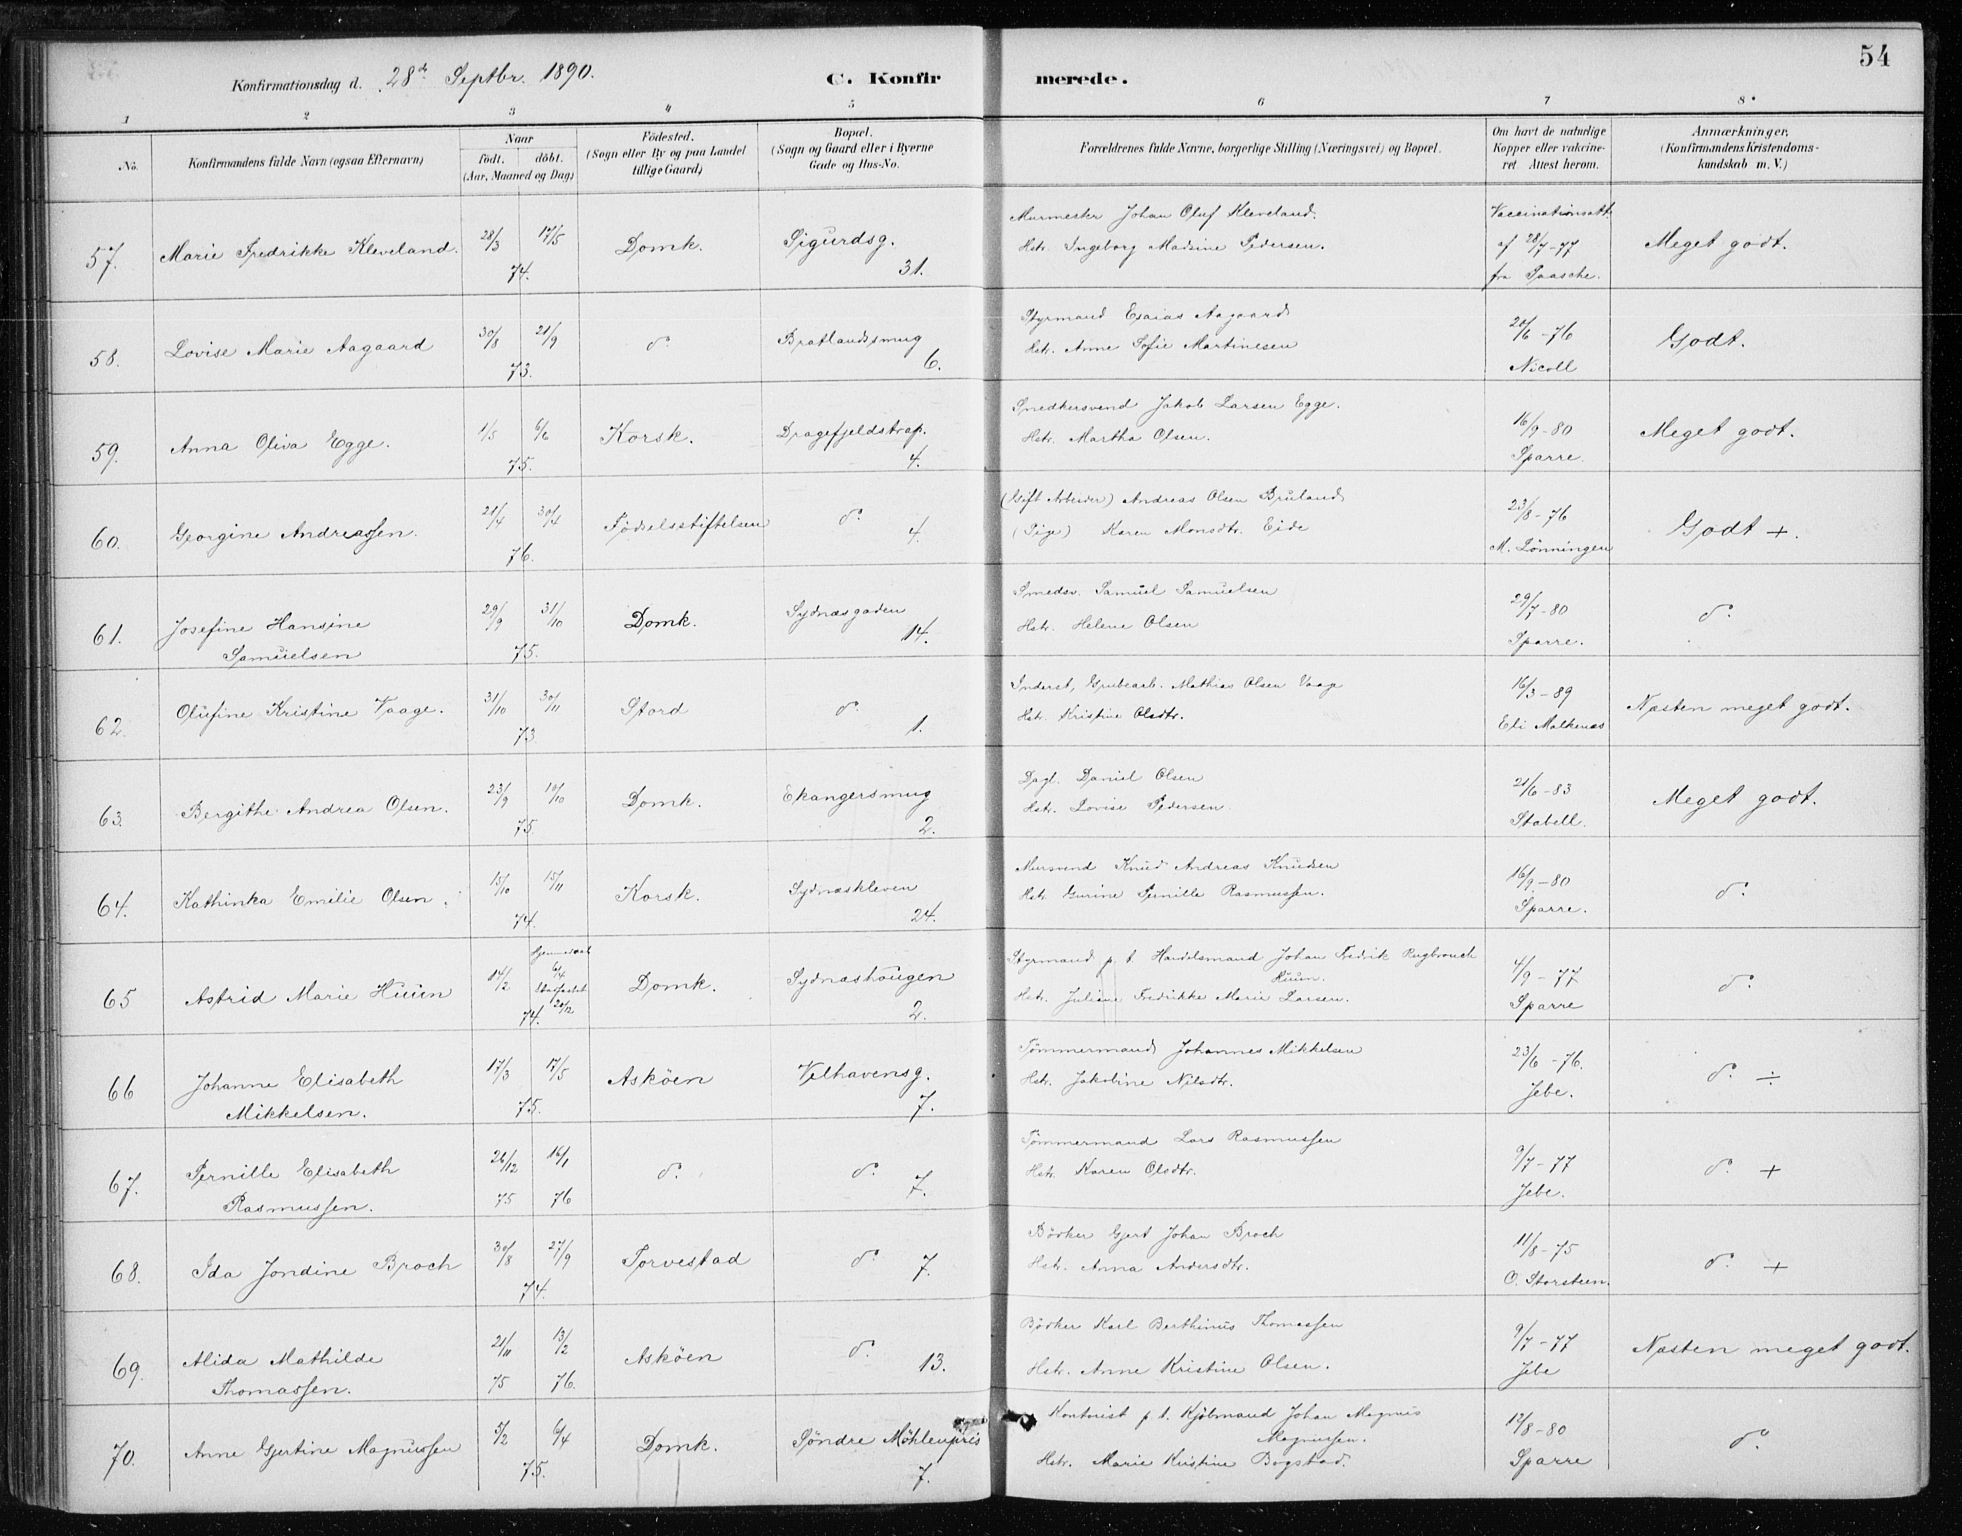 54
Konfirmationsdag d. 28de Septbr. 1890.
C. Konfirmerede.
1 2 3 4 5 6 7 8
No.
Konfirmandens fulde Navn (ogsaa Efternavn)
Naar
født. døbt.
(Aar, Maaned og Dag)
Fødested.
(Sogn eller By og paa Landet
tillige Gaard)
Bopæl.
(Sogn og Gaard eller i Byerne
Gade og Hus-No.
Forældrenes fulde Navne, borgerlige Stilling (Næringsvei) og Bopæl.
Om havt de naturlige
Kopper eller vakcine-
ret. Attest herom.
Anmærkninger.
(Konfirmandens Kristendoms-
kundskab m. V.)
57. Marie Fredrikke Kleveland. 28/3 17/5 74. Domk. Sigurdsg. 31.
Murmester Johan Oluf Kleveland.
Hstr. Ingeborg Madsine Pedersen.
Vaccinationsatt.
af 28/7-77
fra Paasche.
Meget godt.
58. Lovise Marie Aagaard 30/8 21/9 73. do Bratlandssmug 6.
Styrmand Esaias Aagaard
Hstr. Anne Sofie Martinesen
20/6-76
Nicoll
Godt.
59. Anna Oliva Egge. 1/5 6/6 75. Korsk. Dragefjeldstrap. 4.
Snedkersvend Jakob Larsen Egge.
Hstr. Martha Olsen.
16/9-80
Sparre.
Meget godt.
60. Georgine Andreassen. 21/4 30/4 76. Fødselsstiftelsen do 4.
(Gift Arbeider) Andreas Olsen Bruland
(Pige) Karen Monsdtr. Eide
23/8-76
M. Lönningen
Godt +.
61. Josefine Hansine
Samuelsen 29/9 31/10 75. Domk. Sydnæsgaden 14.
Smedsv. Samuel Samuelsen
Hstr. Helene Olsen
29/7-80
Sparre.
do
62. Olufine Kristine Vaage. 31/10 30/11 73. Stord do 1.
Inderst, Grubearb. Mathias Olsen Vaage
Hstr. Kristine Olsdtr.
16/3-89
Eli Malkenæs
Næsten meget godt.
63. Bergithe Andrea Olsen. 23/9 10/10 75. Domk. Ekangersmug 2.
Dagl. Daniel Olsen
Hstr. Lovise Pedersen.
21/6-83
Stabell.
Meget godt.
64. Kathinka Emilie Olsen. 15/10 15/11 74. Korsk. Sydnæskleven 24.
Mursvend Knud Andreas Knudsen
Hstr. Gurine Pernille Rasmussen.
16/9-80
Sparre.
do
65 Astrid Marie Huun 14/2 Hjemmedøbt 6/4 20/12 74. Domk. Sydnæshougen 2.
Styrmand p. t. Handelsmand Johan Fredrik Rugbrouch
Huun.
Hstr. Juliane Fredrikke Marie Larsen.
4/9-77
Sparre
do
66 Johanne Elisabeth
Mikkelsen. 17/3 17/5 75. Asköen Velhavensg. 7.
Tømmermand Johannes Mikkelsen
Hstr. Jakobine Nilsdtr.
23/6-76.
Jebe.
do ÷
67. Pernille Elisabeth
Rasmussen. 26/12 75 16/1 76 do do 7.
Tømmermand Lars Rasmussen
Hstr. Karen Olsdtr.
9/7-77
Jebe.
do +
68. Ida Jondine Broch 30/8 27/9 74. Torvestad do 7.
Bödker Gjert Johan Broch
Hstr. Anna Andersdtr.
11/8-75
O. Storsteen.
do +
69. Alida Mathilde
Thomassen. 21/11 75 13/2 76. Asköen do 13.
Bödker Karl Berthinus Thomassen
Hstr. Anne Kristine Olsen.
9/7-77
Jebe
Næsten meget godt.
70. Anne Gjertine Magnussen 5/2 6/4 75. Domk. Söndre Möhlenpris 7.
Kontorist p. t. Kjöbmand Johan Magnus
Magnussen.
Hstr. Marie Kristine Bogstad.
12/8-80
Sparre
do